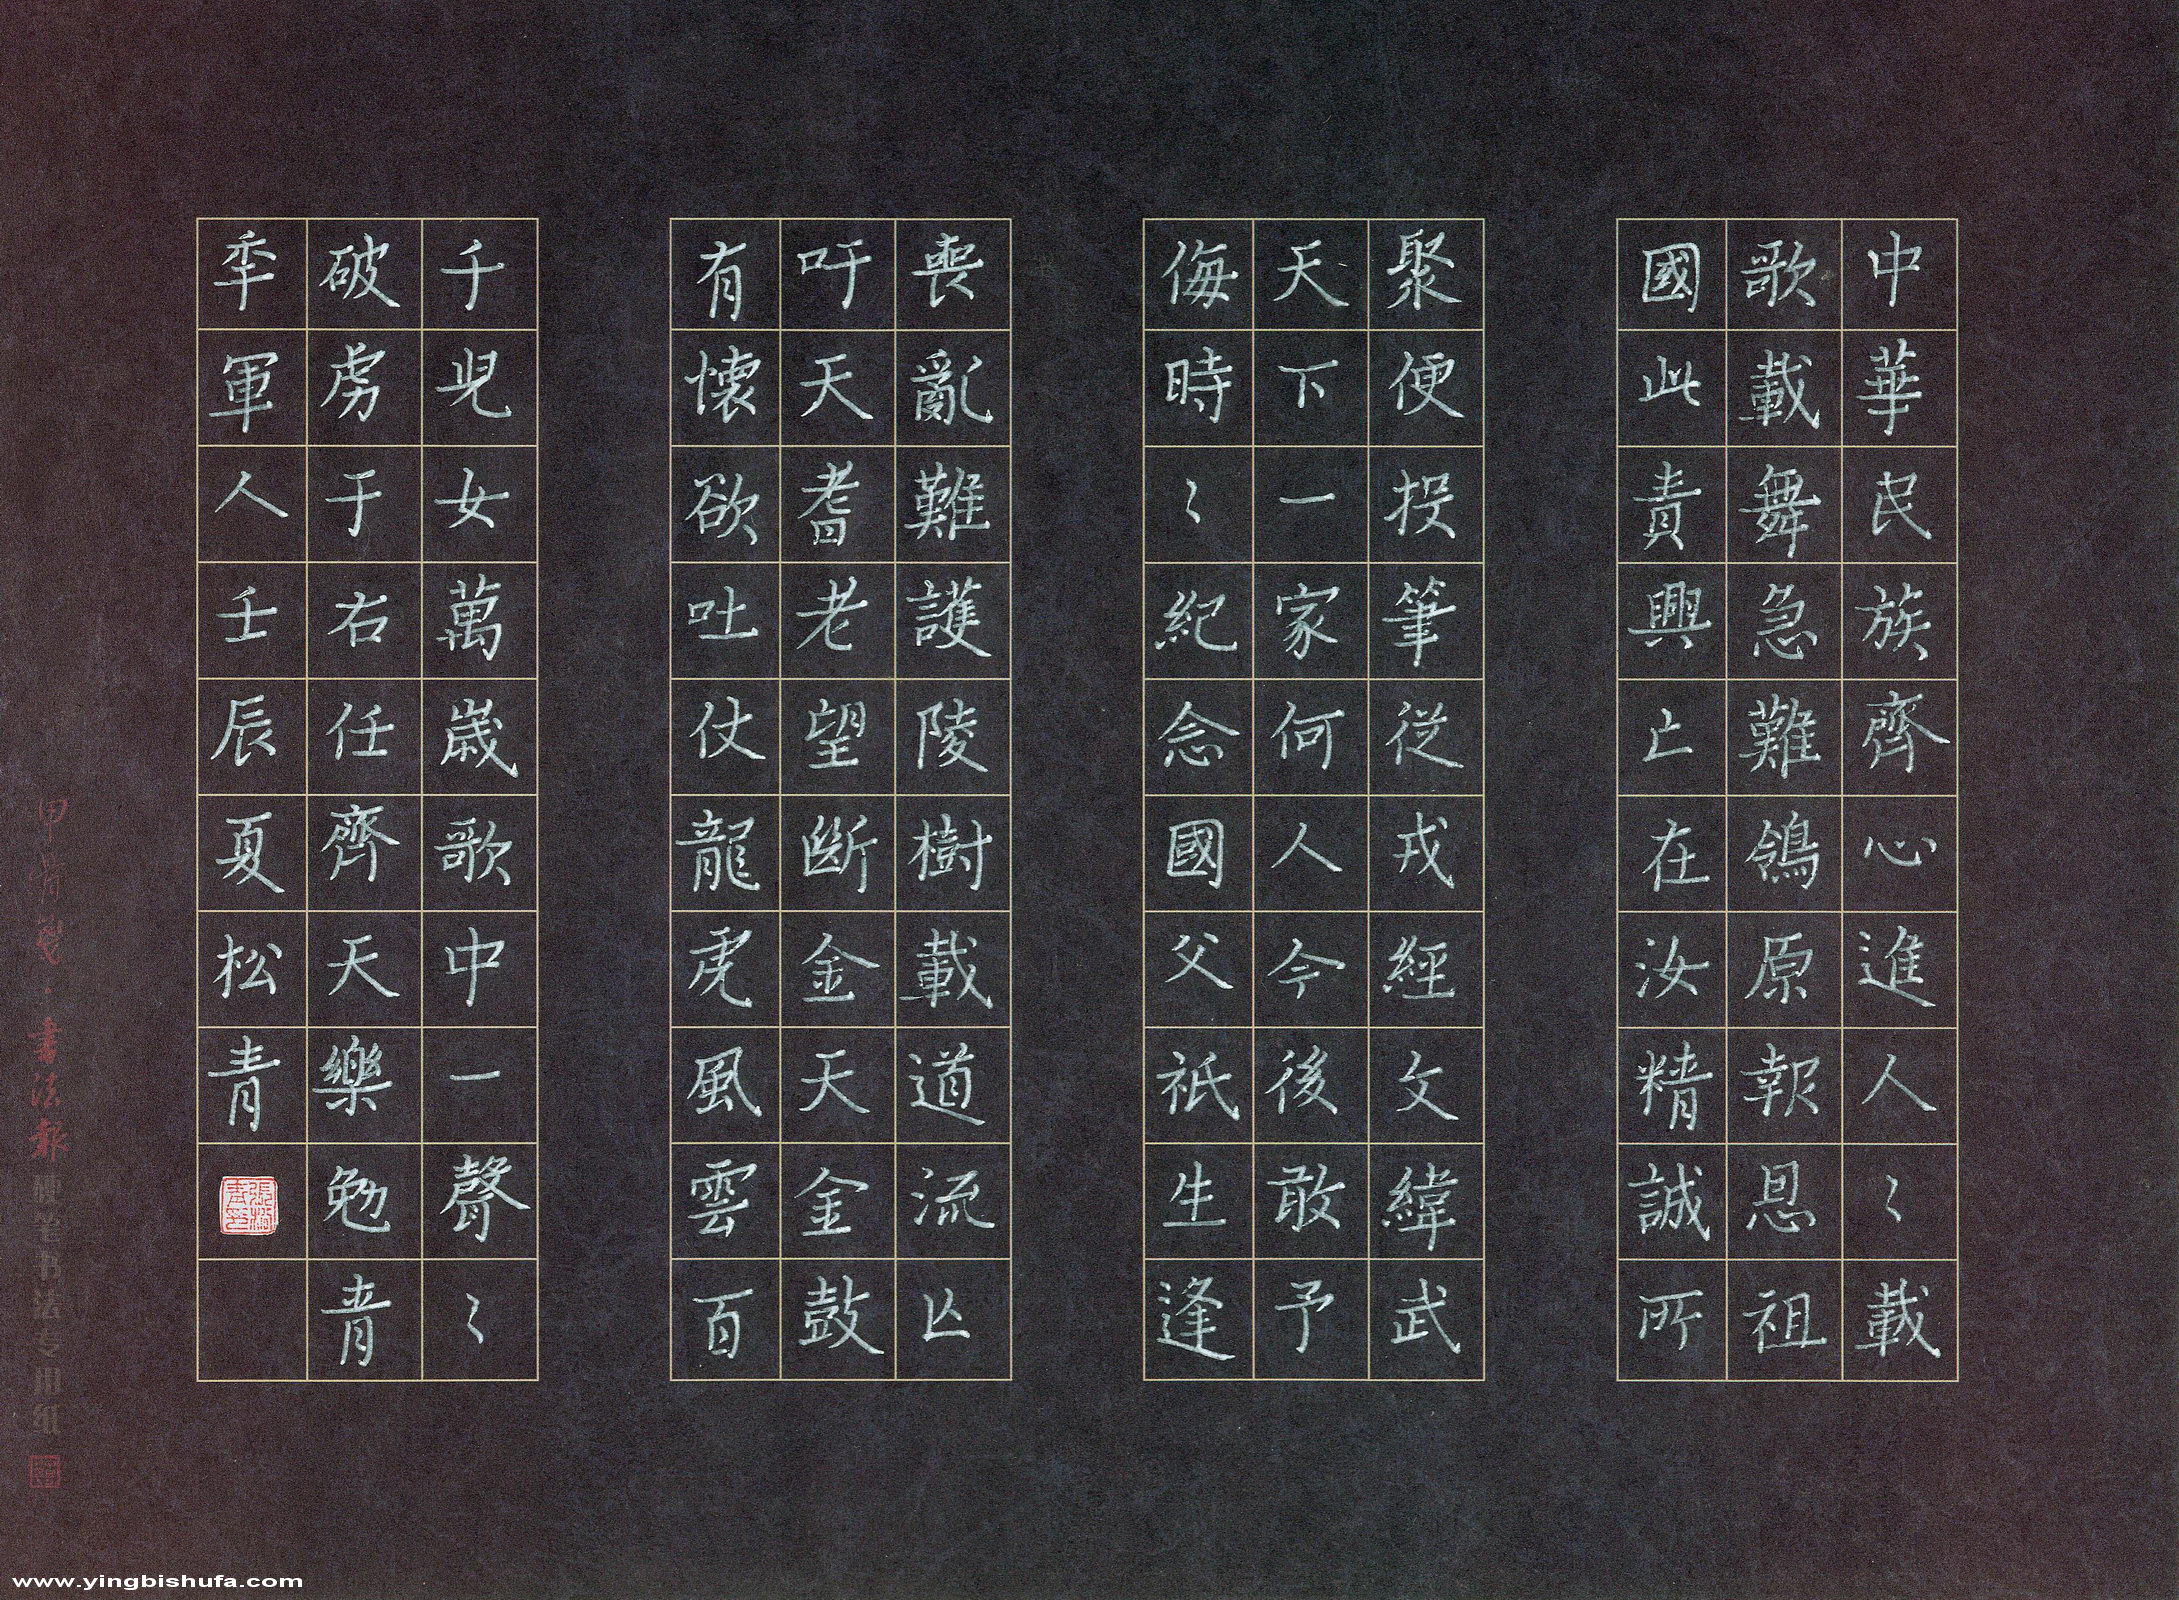 中華民族齊心進人〻載
歌載舞急難鴒原報恩祖
國此責興亡在汝精誠所
聚便投筆從戎經文緯武
天下一家何人今後敢予
侮時〻紀念國父祇生逢
喪亂難護陵樹載道流亡
吁天耆老望斷金天金鼓
有懷欲吐仗龍虎風雲百
千兒女萬歲歌中一聲〻
破虜于右任齊天樂勉青
年軍人壬辰夏松青
書法報硬笔书法专用纸
www.yingbishufa.com